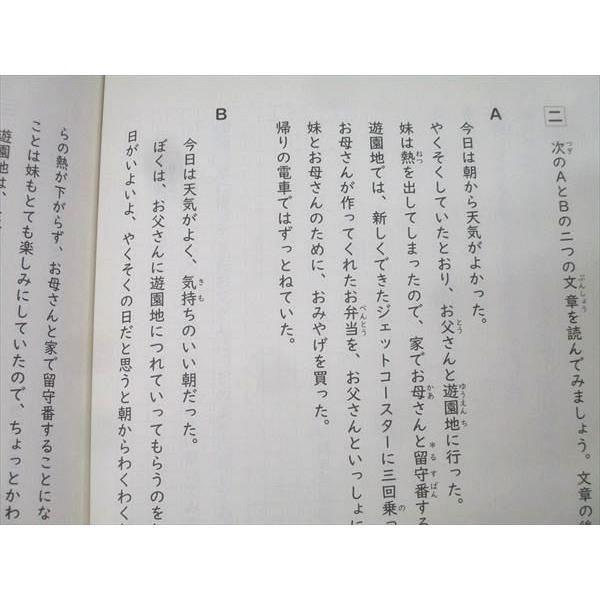 二 次のAとBの二つの文章を読んでみましょう。文章の
A
今日は朝から天気がよかった。
やくそくしていたとおり、お父さんと遊園地に行った。
妹は熱を出してしまったので、家でお母さんと留守番する
遊園地では、新しくできたジェットコースターに三回乗っ
お母さんが作ってくれたお弁当を、お父さんといっしょに
妹とお母さんのために、おみやげを買った。
帰りの電車ではずっとねていた。
B
今日は天気がよく、気持ちのいい朝だった。
ぼくは、お父さんに遊園地につれていってもらうのを
日がいよいよ、やくそくの日だと思うと朝からわくわく
らの熱が下がらず、お母さんと家で留守番することにな
ことは妹もとても楽しみにしていたので、ちょっとかわ
遊園地は、